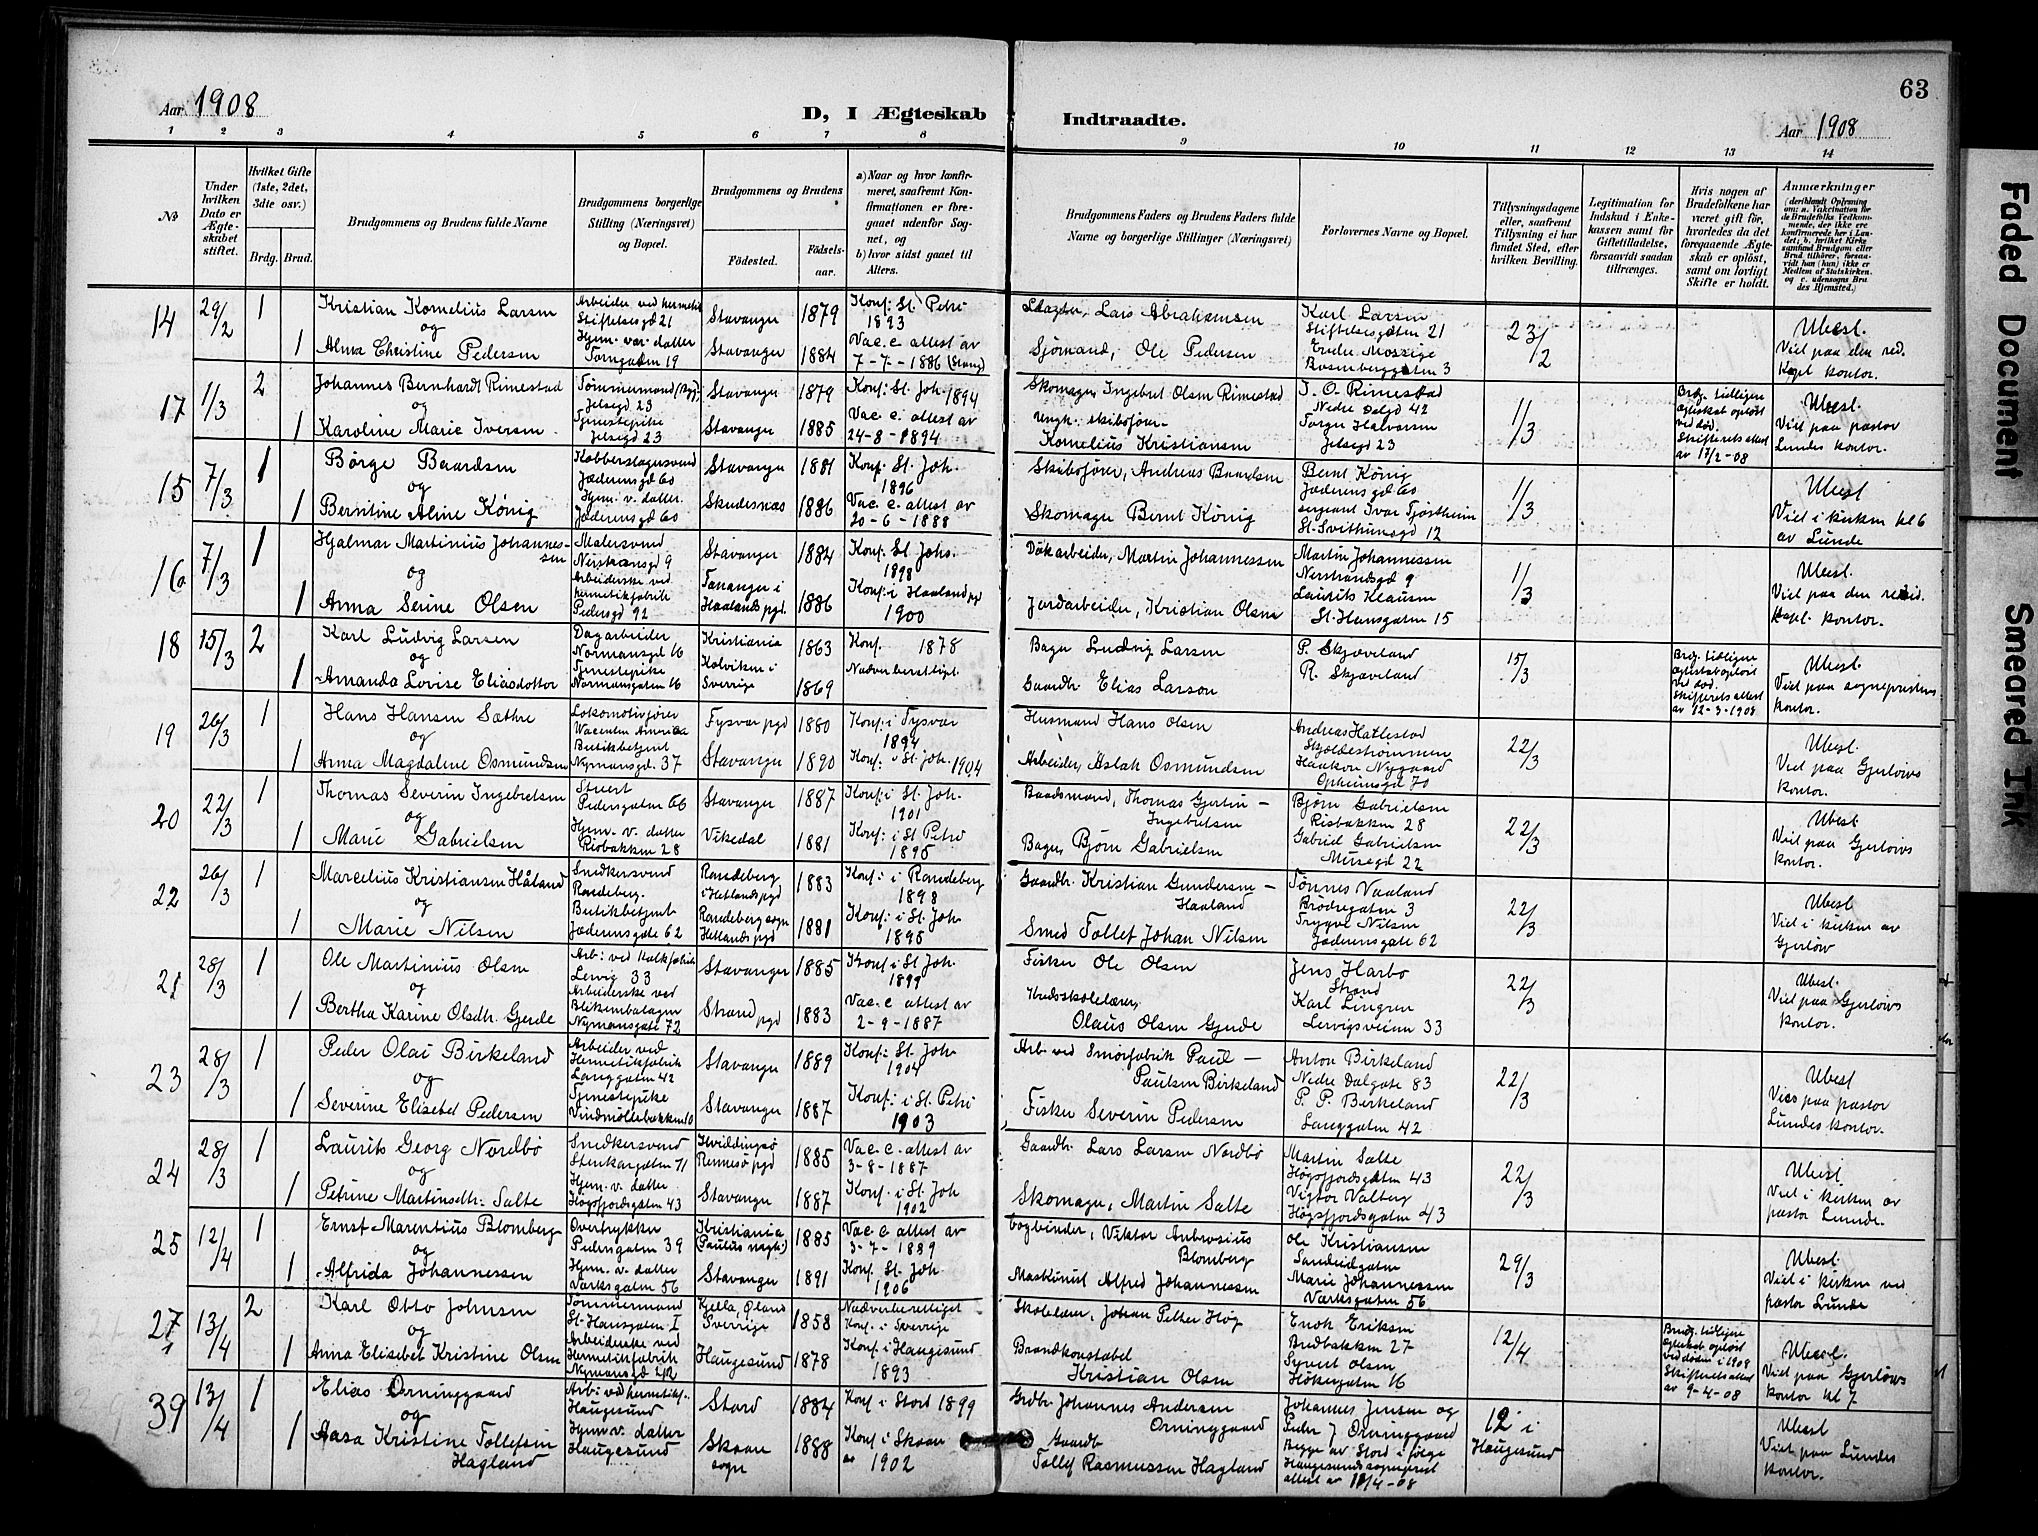 63
Aar 1908
D, I Ægteskab Indtraadte.
Aar 1908
1 2 3 4 5 6 7 8 9 10 11 12 13 14
No
Under hvilken Dato er Ægteskabet stiftet.
Hvilket Gifte (1ste, 2det, 3die osv.)
Brdg. Brud.
Brudgommens og Brudens fulde Navne
Brudgommens borgerlige Stilling (Næringsvei) og Bopæl.
Brudgommens og Brudens
Fødested. Fødselsaar.
a) Naar og hvor konfirmeret, saafremt Konfirmationen er foregaaet udenfor Sognet, og
b) hvor sidst gaaet til Alters.
Brudgommens Faders og Brudens Faders fulde Navne og borgerlige Stillinger (Næringsvei)
Forlovernes Navne og Bopæl.
Tillysningsdagene eller, saafremt Tillysning ei har fundet Sted, efter hvilken Bevilling.
Legitimation for Indskud i Enkekassen samt for Giftetilladelse, forsaavidt saadan tiltrænges.
Hvis nogen af Brudefolkene har været gift før, hvorledes da det foregaaende Ægteskab er opløst, samt om lovligt Skifte er holdt.
Anmærkninger
14 29/2 1 Kristian Kornelius Larsen Stiftelsesgd 21 Stavanger 1879 Konf: St. Petri 1893 Lars Abrahamsen Karl Larsen Stiftelsesgaten 21 23/2 Ubesl.
og
1 Alma Christine Pedersen Hjem. vær. datter Tarngaten 19 Stavanger 1884 Vac. c. attest av 7-7-1886 Sjømand, Ole Pedersen Viet paa den res. Kapl. kontor.
17 1/3 2 Johannes Bernhardt Rimestad Jelsegd 23 Stavanger 1879 Konf: St. Joh. 1894 Skomager Ingebret Olsen Rimestad T. O. Rimestad Nedre Dalgd 42 1/3 Brdg. tidligere egteskab opløst ved død. Skifterets attest av 17/2-08 Ubesl.
og
1 Karoline Marie Iversen Tjenestepike Jelsegd 23 Stavanger 1885 Vac. c. attest av 24-8-1894 Kornelius Kristiansen Torger Halvorsen Jelsegd 23 Viet paa pastor Lundes kontor.
15 7/3 1 Børge Baardsen Kobberslagersvend Jæderensgd 60 Stavanger 1881 Konf. St. Joh. 1896 Skibsfører, Andreas Baardsen Bernt König Jæderensgd 60 1/3 Ubesl
og
1 Berntine Aline König Hjem. v. datter. Jæderensgd 60 Skudesnæs 1886 Vac. c. attest av 20-6-1888 Skomager Bernt König sergeant Ivar Tjøstheim St. Svithunsgd 12 Viet i kirken kl 6 av Lunde
16 7/3 1 Hjalmar Martinius Johannessen Malersvend Nerstransgd 9 Stavanger 1884 Konf: St Johs. 1898 Dokarbeider, Martin Johannessen Martin Johannessen Nerstrandsgd 9 1/3 Ubesl.
og
1 Anna Serine Olsen Arbeiderske ved hermetikfabrik Pedersgd 92 Tananger i Haalands pgd. 1886 Konf: i Haaland pgd 1900 Jordarbeider, Kristian Olsen Laurits Klausen St. Hansgaten 15 Viet paa den resid. Kapl. kontor.
18 15/3 2 Karl Ludvig Larsen Dagarbeider Normansgd 16 Kristiania 1863 Konf. 1878 Bager Ludvig Larsen P. Skjæveland 15/3 Brdg. tidligere egteskab opløst ved død. Skifterets attest av 12-3-1908 Ubesl.
og
1 Amanda Lovise Eliasdotter Tjenestepike Normansgaten 16 Kolviken i Sverrige 1869 Nadverberettigt. Gaardbr. Elias Larson R. Skjæveland Viet paa sogneprestens kontor.
19 26/3 1 Hans Hansen Sæthre Lokomotivfører Tysvær pgd 1880 Konf: i Tysvær 1894 Husmand Hans Olsen Andreas Hatlestad Skjoldestrømmen 22/3 Ubesl.
og
1 Anna Magdalene Osmundsen Butikbetjent Nymansgd. 37 Stavanger 1890 Konf: i St. Joh. 1904 Arbeider, Aslak Osmundsen Haakon Nygaard Opheimsgd 70 Viet paa Gjerløws kontor.
20 22/3 1 Thomas Severin Ingebretsen Stuert Pedersgaten 66 Stavanger 1887 Konf: i St. Joh. 1901 Baadsmand, Thomas Gjertin - Ingebretsen Bjørn Gabrielsen Risbakken 28 22/3 Ubesl
og
1 Marie Gabrielsen Hjem. v. datter Risbakken 28 Vikedal 1881 Konf: i St Petri 1895 Bager, Bjørn Gabrielsen Gabriel Gabrielsen Musegd 22 Viet paa Gjerløws kontor.
22 26/3 1 Marcelius Kristiansen Håland Snedkersvend Randeberg. Randeberg i Hetlands pgd 1883 Konf: i Randeberg 1898 Gaardbr. Kristian Gundersen - Haaland Tønnes Vaaland Brødregaten 3 22/3 Ubesl
og
1 Marie Nilsen Butikbetjent Jæderensgate 62 Randeberg sogn Hetlands pgd 1881 Konf: i St. Joh. 1895 Smed Tollef Johan Nilsen Trygve Nilsen Jæderensgate 62 Viet i kirken av Gjerløw
21 28/3 1 Ole Martinius Olsen Lervig 33 Stavanger 1885 Konf i St. Joh. 1899 Fisker Ole Olsen Jens Harbo Strand 22/3 Ubesl.
og
1 Bertha Karine Olsdtr. Gjerde Arbeiderske ved Blikemballagen Nymansgate 72 Strand pgd 1883 Vac. c attest av 2-9-1887 Olaus Olsen Gjerde Karl Lingren Lervigsveien 33 Viet paa Gjerløws kontor.
23 28/3 1 Peder Olai Birkeland Arbeider ved Hermetikfabrik Langgaten 42 Stavanger 1889 Konf: i St. Joh. 1904 Arb. ved Smørfabrik Paul - Paulsen Birkeland Anton Birkeland Nedre Dalgate 83 22/3 Ubesl
og
1 Severine Elisebet Pedersen Tjenestepike Vindmøllebakken 10 Stavanger 1887 Konf: i St. Petri 1903 Fisker Severin Pedersen P. P. Birkeland Langgaten 42 Vies paa pastor Lundes kontor.
24 28/3 1 Laurits Georg Nordbø Snedkersvend Stenkargaten 71 Hviddingsø Rennesø pgd 1885 Vac. c. attest av 3-8-1887 Gaardbr. Lars Larsen Nordbø Martin Salte Høgsfjordsgaten 43 22/3 Ubesl
og
1 Petrine Martinsdtr: Salte Hjem. v. datter Høgsfjordsgaten 43 Stavanger 1887 Konf. i St. Joh 1902 Skomager, Martin Salte Vigtor Valberg Høgsfjordsgaten 43 Viet i kirken av pastor Lunde.
25 12/4 1 Ernst Marentius Blomberg Overtrykker Pedersgaten 39 Kristiania (Paulus mgh.) 1885 Vac. c attest av 3-7-1889 Bogbinder, Viktor Ambrosius Blomberg Ole Kristiansen Sandeidgaten 29/3 Ubesl.
og
1 Alfrida Johannessen Hjem. v. datter Værksgaten 56 Stavanger 1891 Konf. St. Joh. 1906 Maskinist Alfred Johannessen Marie Johannessen Værksgaten 56 Viet i kirken ved pastor Lunde
27 13/4 2 Karl Otto Johnsen Tømmermand St. Hansgaten I Kjella, Øland Sverrige 1858 Nadverberettiget Konf. i Sverrige Skolelærer, Johan Petter Høg Enok Eriksen Bredbakken 27 12/4 Brudg. tidligere egteskab opløst ved døden i 1908 Skifterets attest av 9-4-08 Ubesl.
og
1 Anna Elisebet Kristine Olsen Arbeiderske ved Hermetikfabrik Haugesund 1878 Konf: i Haugesund 1893 Brandkonstabel Kristian Olsen Syvert Olsen Høkergaten 16 Viet paa Gjerløws kontor kl 7
39 13/4 1 Elias Orninggaard Arb: ved hermetikf. Haugesund Stord 1884 Konf i Stord 1899 Grdbr Johannes Andersen Orninggaard Johannes Jensen og Peder J Orninggaard 12 i Haugesund Ubesl
og
1 Aasa Kristine Tollefsen Hagland Hjem v. datter Haugesund Skaare sogn 1888 Konf i Skaare 1902 Gaardb Tollef Rasmussen Hagland Begge av Stord i følge Haugesunds sogneprest attest av 11/4-08 Viet paa Lundes kontor.
Faded Document
Smeared Ink